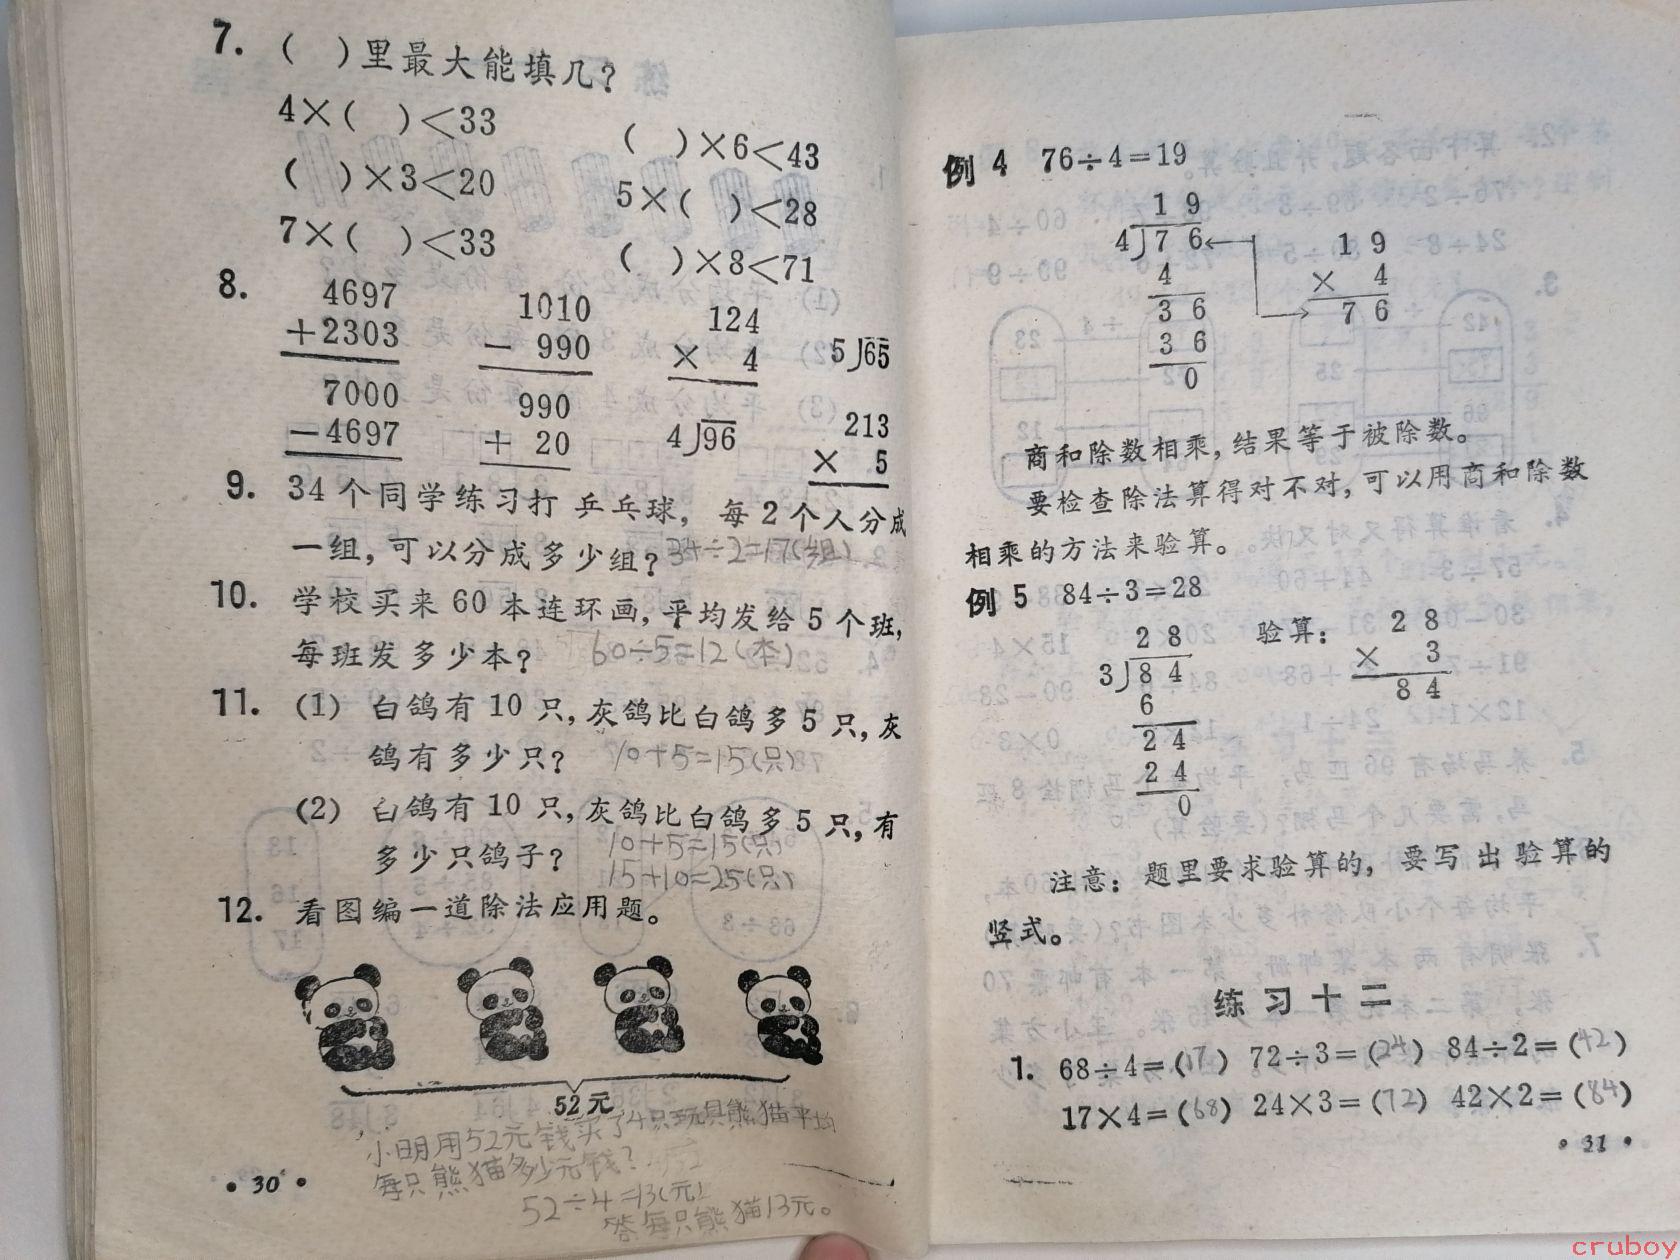 7. (　)里最大能填几？
4×(　)<33　(　)×6<43
(　)×3<20　5×(　)<28
7×(　)<33　(　)×8<71
8.
4697　1010　124
+2303　- 990　× 4　5)65
7000　990　4)96　213
-4697　+ 20　× 5
9. 34个同学练习打乒乓球，每2个人分成
一组，可以分成多少组？34÷2=17(组)
10. 学校买来60本连环画，平均发给5个班，
每班发多少本？60÷5=12(本)
11. (1) 白鸽有10只，灰鸽比白鸽多5只，灰
鸽有多少只？10+5=15(只)
(2) 白鸽有10只，灰鸽比白鸽多5只，有
多少只鸽子？10+5=15(只)
15+10=25(只)
12. 看图编一道除法应用题。
52元
小明用52元钱买了4只玩具熊猫平均
每只熊猫多少元钱？
52÷4=13(元)
答每只熊猫13元。
• 30 •
例4　76÷4=19
19
4)76　19
4　× 4
36　76
36
0
商和除数相乘，结果等于被除数。
要检查除法算得对不对，可以用商和除数
相乘的方法来验算。
例5　84÷3=28
28　验算：　28
3)84　× 3
6　84
24
24
0
注意：题里要求验算的，要写出验算的
竖式。
练习十二
1. 68÷4=(17)　72÷3=(24)　84÷2=(42)
17×4=(68)　24×3=(72)　42×2=(84)
• 31 •
cruboy